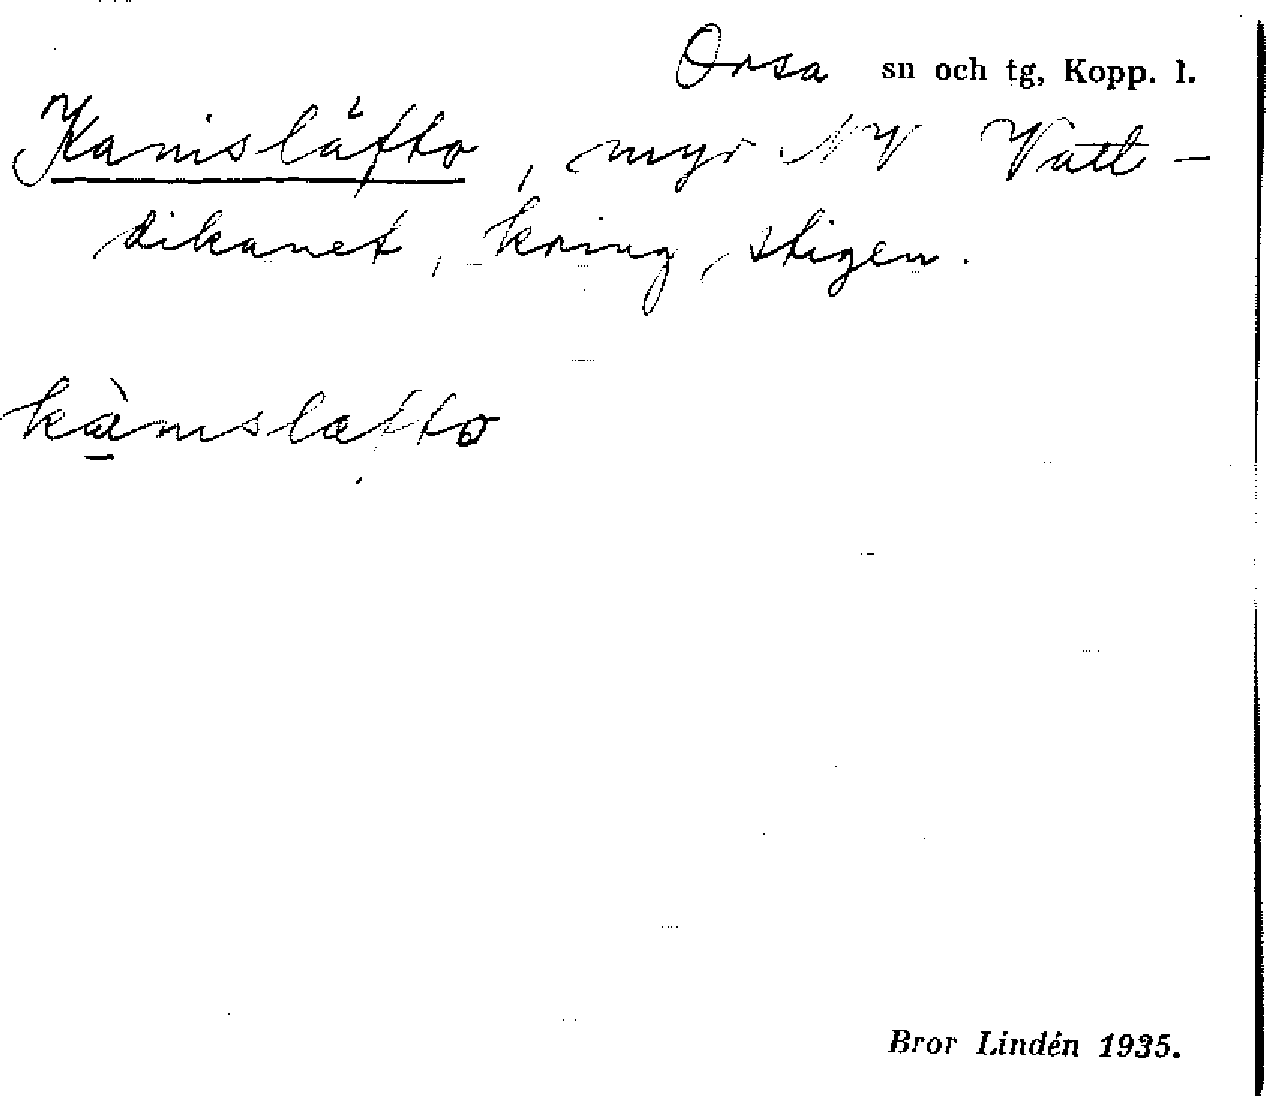 Orsa sn och tg, Kopp. l.
Kanisläfto, myr NV Vatt-
dikanet, kring stigen.
kànislafto
Bror Lindén 1935.